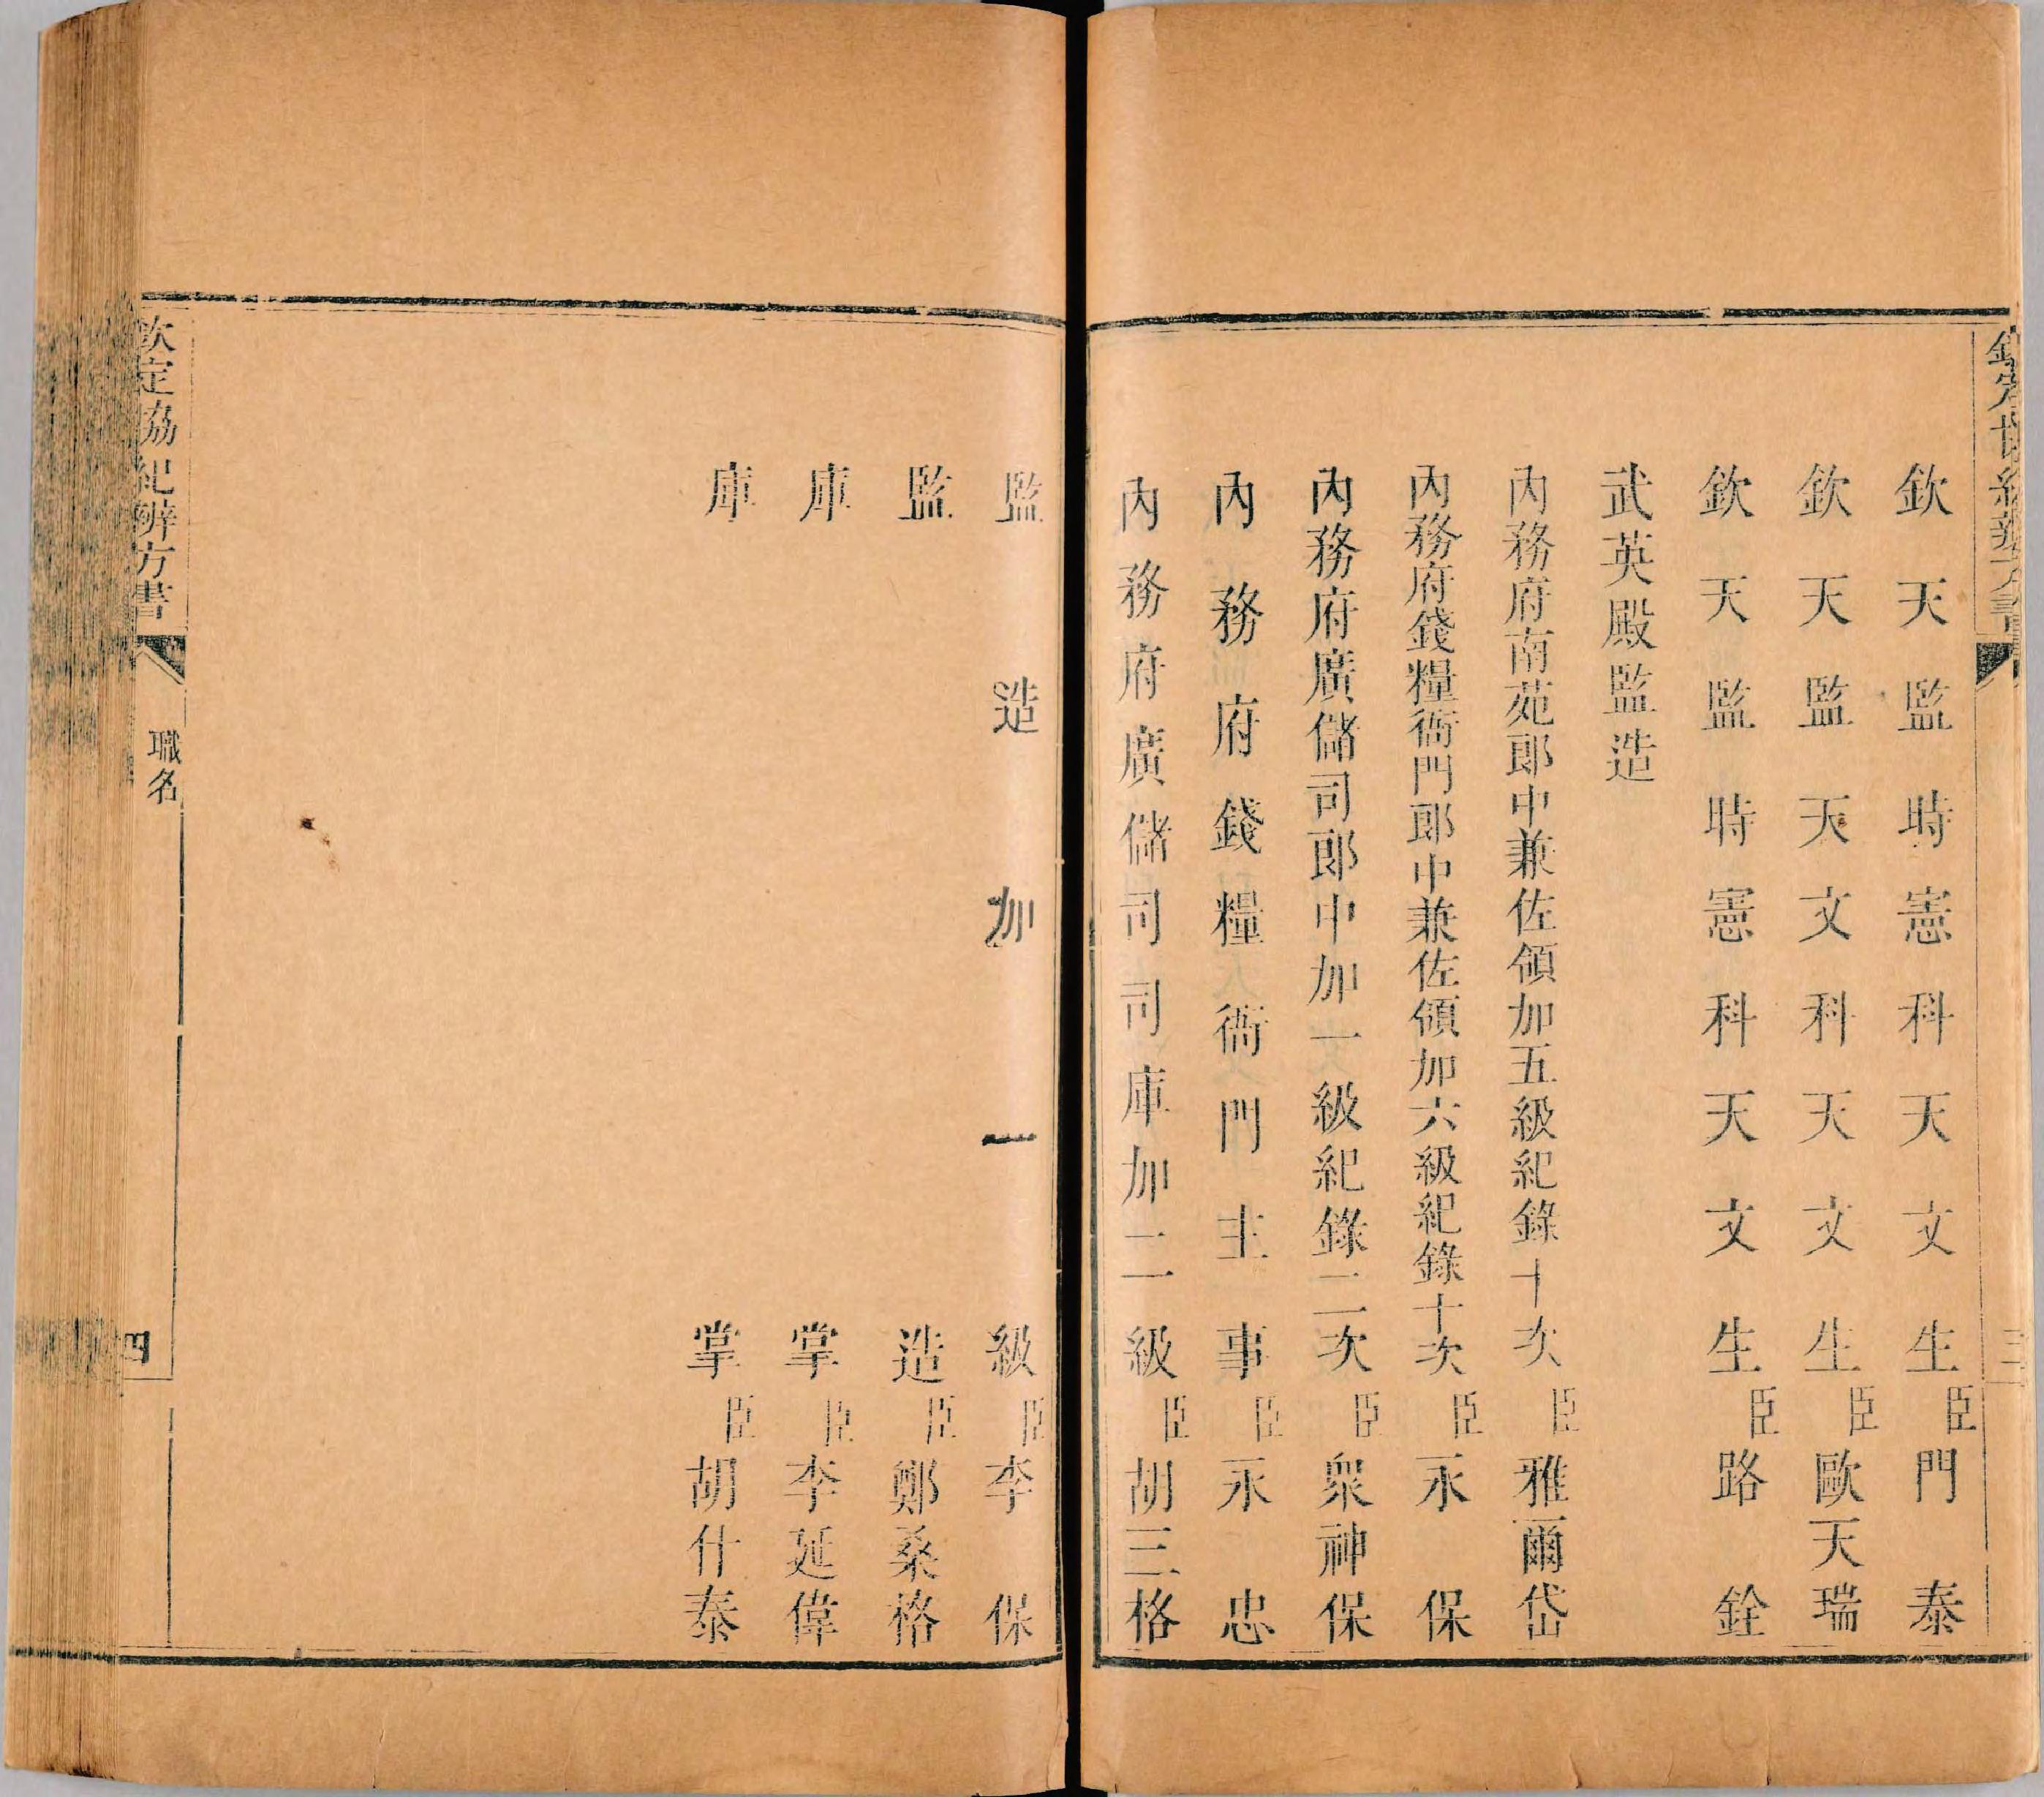 欽定協紀辨方書
三
欽天監時憲科天文生臣門泰
欽天監天文科天文生臣歐天瑞
欽天監時憲科天文生臣路銓
武英殿監造
內務府南苑郎中兼佐領加五級紀錄十次臣雅爾岱
內務府錢糧衙門郎中兼佐領加六級紀錄十次臣永保
內務府廣儲司郎中加一級紀錄二次臣衆神保
內務府錢糧衙門主事臣永忠
內務府廣儲司司庫加二級臣胡三格
監造加一級臣李保
監造臣鄭桑格
庫掌臣李延偉
庫掌臣胡什泰
欽定協紀辨方書
職名
四